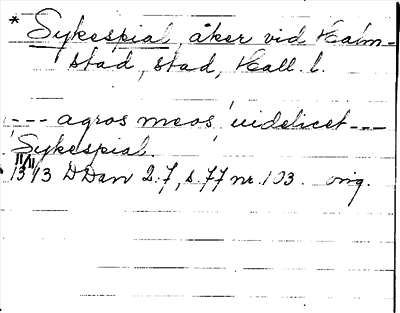 * Sykespial, åker vid Halm-
stad, stad, Hall. l.
--- agros meos, uidelicet ---
Sykespial.
13 11/11 13 DDan 2:7, s. 77 nr. 103. orig.